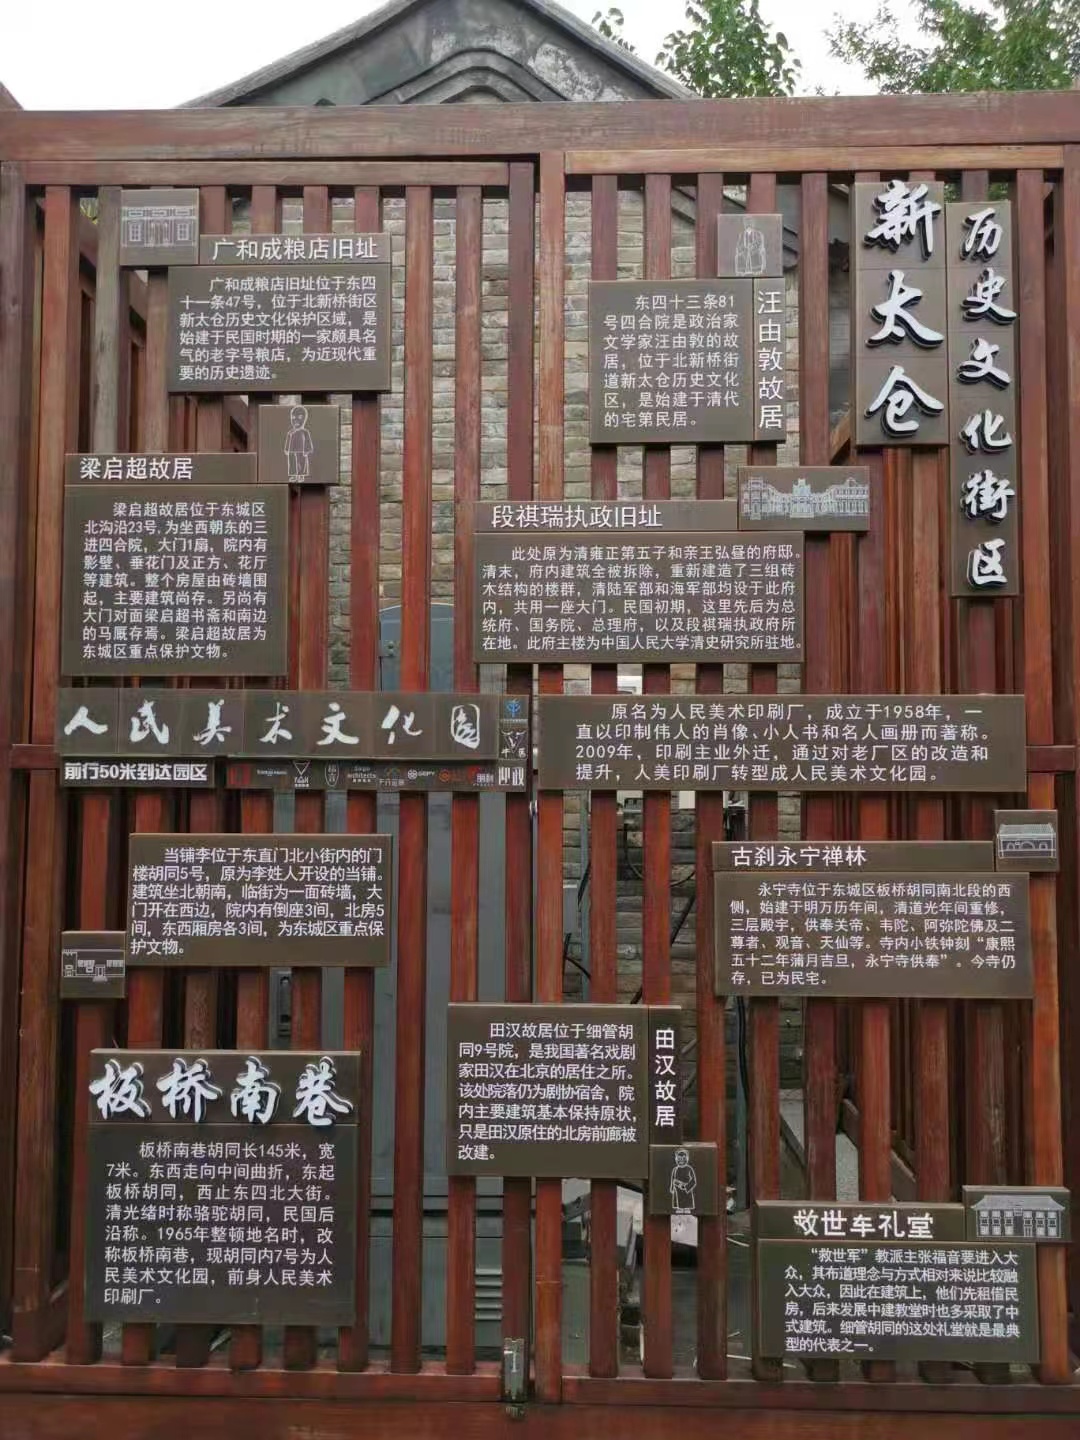 新太仓
历史文化街区
广和成粮店旧址
广和成粮店旧址位于东四
十一条47号，位于北新桥街区
新太仓历史文化保护区域，是
始建于民国时期的一家颇具名
气的老字号粮店，为近现代重
要的历史遗迹。
汪由敦故居
东四十三条81
号四合院是政治家
文学家汪由敦的故
居，位于北新桥街
道新太仓历史文化
区，是始建于清代
的宅第民居。
梁启超故居
梁启超故居位于东城区
北沟沿23号,为坐西朝东的三
进四合院，大门1扇，院内有
影壁、垂花门及正方、花厅
等建筑。整个房屋由砖墙围
起，主要建筑尚存。另尚有
大门对面梁启超书斋和南边
的马厩存焉。梁启超故居为
东城区重点保护文物。
段祺瑞执政旧址
此处原为清雍正第五子和亲王弘昼的府邸。
清末，府内建筑全被拆除，重新建造了三组砖
木结构的楼群，清陆军部和海军部均设于此府
内，共用一座大门。民国初期，这里先后为总
统府、国务院、总理府，以及段祺瑞执政府所
在地。此府主楼为中国人民大学清史研究所驻地。
人民美术文化园
前行50米到达园区
原名为人民美术印刷厂，成立于1958年，一
直以印制伟人的肖像、小人书和名人画册而著称。
2009年，印刷主业外迁，通过对老厂区的改造和
提升，人美印刷厂转型成人民美术文化园。
当铺李位于东直门北小街内的门
楼胡同5号，原为李姓人开设的当铺。
建筑坐北朝南，临街为一面砖墙，大
门开在西边，院内有倒座3间，北房5
间，东西厢房各3间，为东城区重点保
护文物。
古刹永宁禅林
永宁寺位于东城区板桥胡同南北段的西
侧，始建于明万历年间，清道光年间重修，
三层殿宇，供奉关帝、韦陀、阿弥陀佛及二
尊者、观音、天仙等。寺内小铁钟刻“康熙
五十二年蒲月吉旦，永宁寺供奉”。今寺仍
存，已为民宅。
田汉故居
田汉故居位于细管胡
同9号院，是我国著名戏剧
家田汉在北京的居住之所。
该处院落仍为剧协宿舍，院
内主要建筑基本保持原状，
只是田汉原住的北房前廊被
改建。
板桥南巷
板桥南巷胡同长145米，宽
7米。东西走向中间曲折，东起
板桥胡同，西止东四北大街。
清光绪时称骆驼胡同，民国后
沿称。1965年整顿地名时，改
称板桥南巷，现胡同内7号为人
民美术文化园，前身人民美术
印刷厂。
救世车礼堂
“救世军”教派主张福音要进入大
众，其布道理念与方式相对来说比较融
入大众，因此在建筑上，他们先租借民
房，后来发展中建教堂时也多采取了中
式建筑。细管胡同的这处礼堂就是最典
型的代表之一。